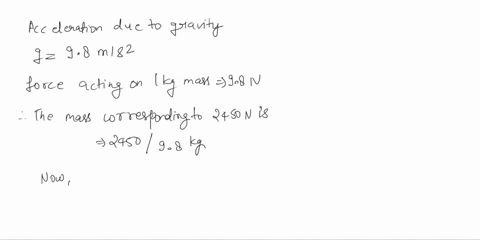 Acceleration due to gravity
g = 9.8 m/s2
force acting on 1 kg mass ⇒ 9.8 N
∴ The mass corresponding to 2450 N is
⇒ 2450 / 9.8 kg
Now,